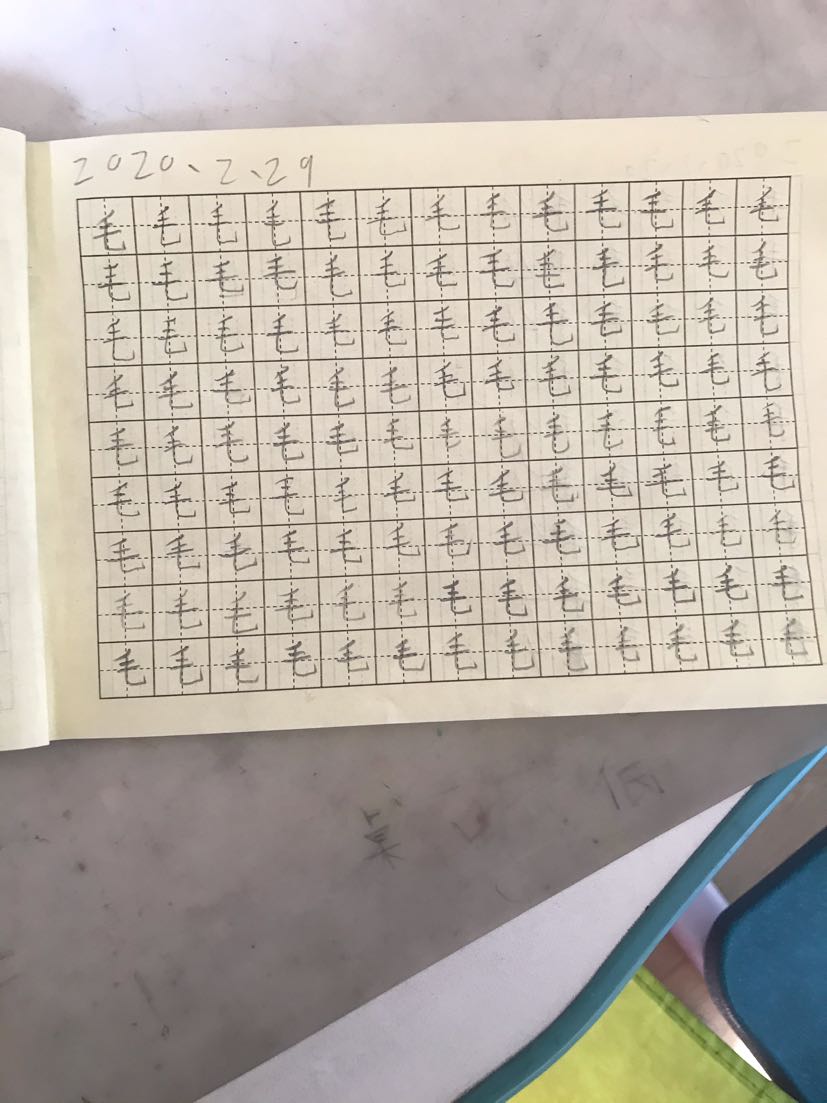 2020、2、29
毛毛毛毛毛毛毛毛毛毛毛毛毛
毛毛毛毛毛毛毛毛毛毛毛毛毛
毛毛毛毛毛毛毛毛毛毛毛毛毛
毛毛毛毛毛毛毛毛毛毛毛毛毛
毛毛毛毛毛毛毛毛毛毛毛毛毛
毛毛毛毛毛毛毛毛毛毛毛毛毛
毛毛毛毛毛毛毛毛毛毛毛毛毛
毛毛毛毛毛毛毛毛毛毛毛毛毛
毛毛毛毛毛毛毛毛毛毛毛毛毛